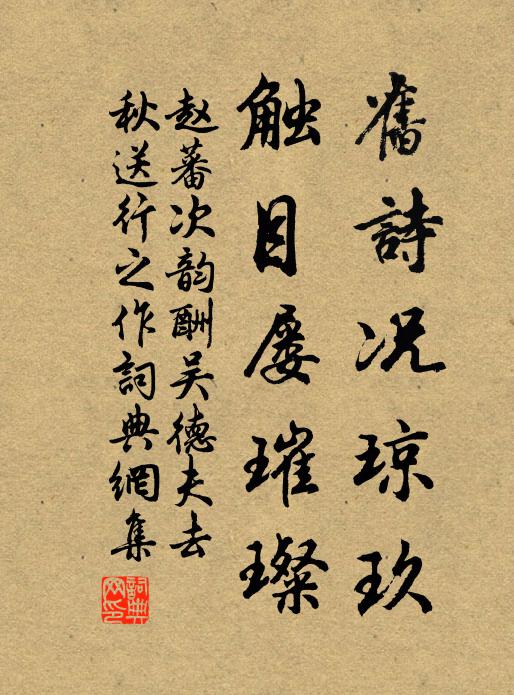 舊詩况琼玖
触目屡璀璨
赵蕃次韵酬吴德夫去
秋送行之作詞典網集
詞典网印